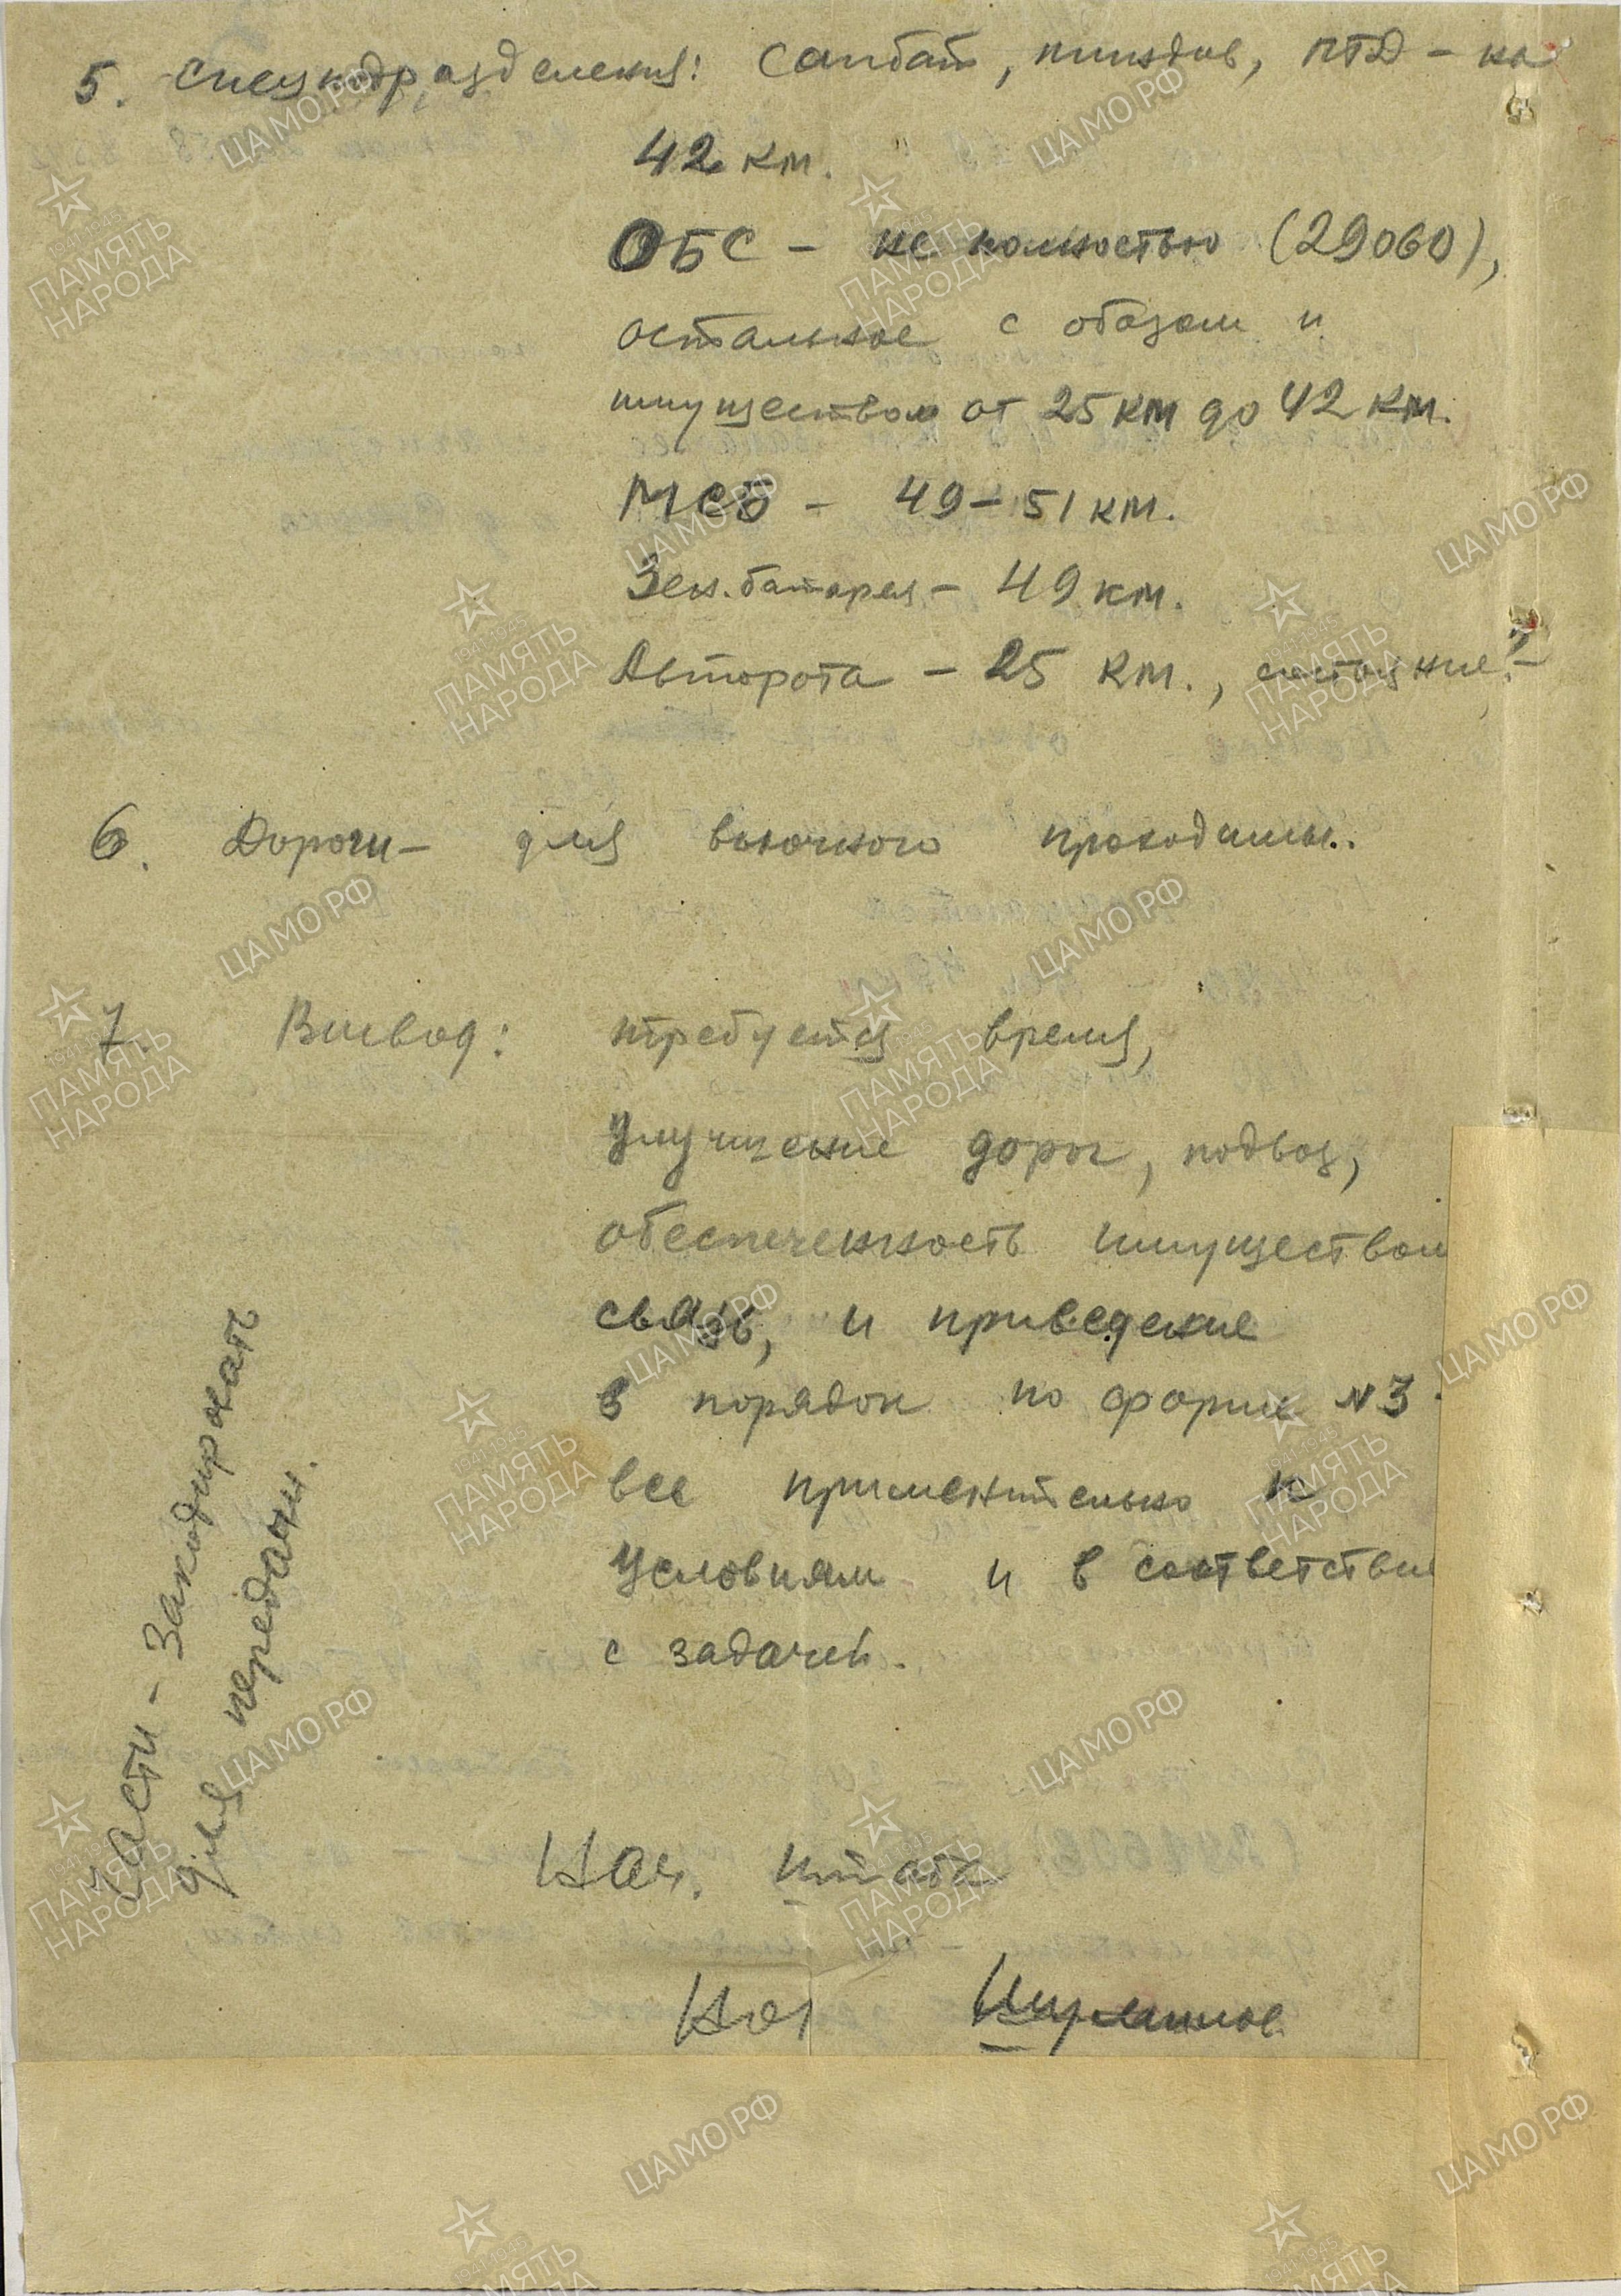 5. Спецподразделения: Санбат, минздив, ПТД – на
42 км.
ОБС – не полностью (29060),
остальное с обозом и
имуществом от 25 км до 42 км.
МСБ – 49–51 км.
Зен. батарея – 49 км.
Авторота – 25 км., состояние? –
6. Дороги – для вьючного проходимы.
7. Вывод: требуется время,
улучшение дорог, подвоз,
обеспеченность имуществом
связь, и приведение
в порядок по форме №3
все применительно к
условиям и в соответствии
с задачей.
Части – Закодировать
для передачи.
Нач. штаба